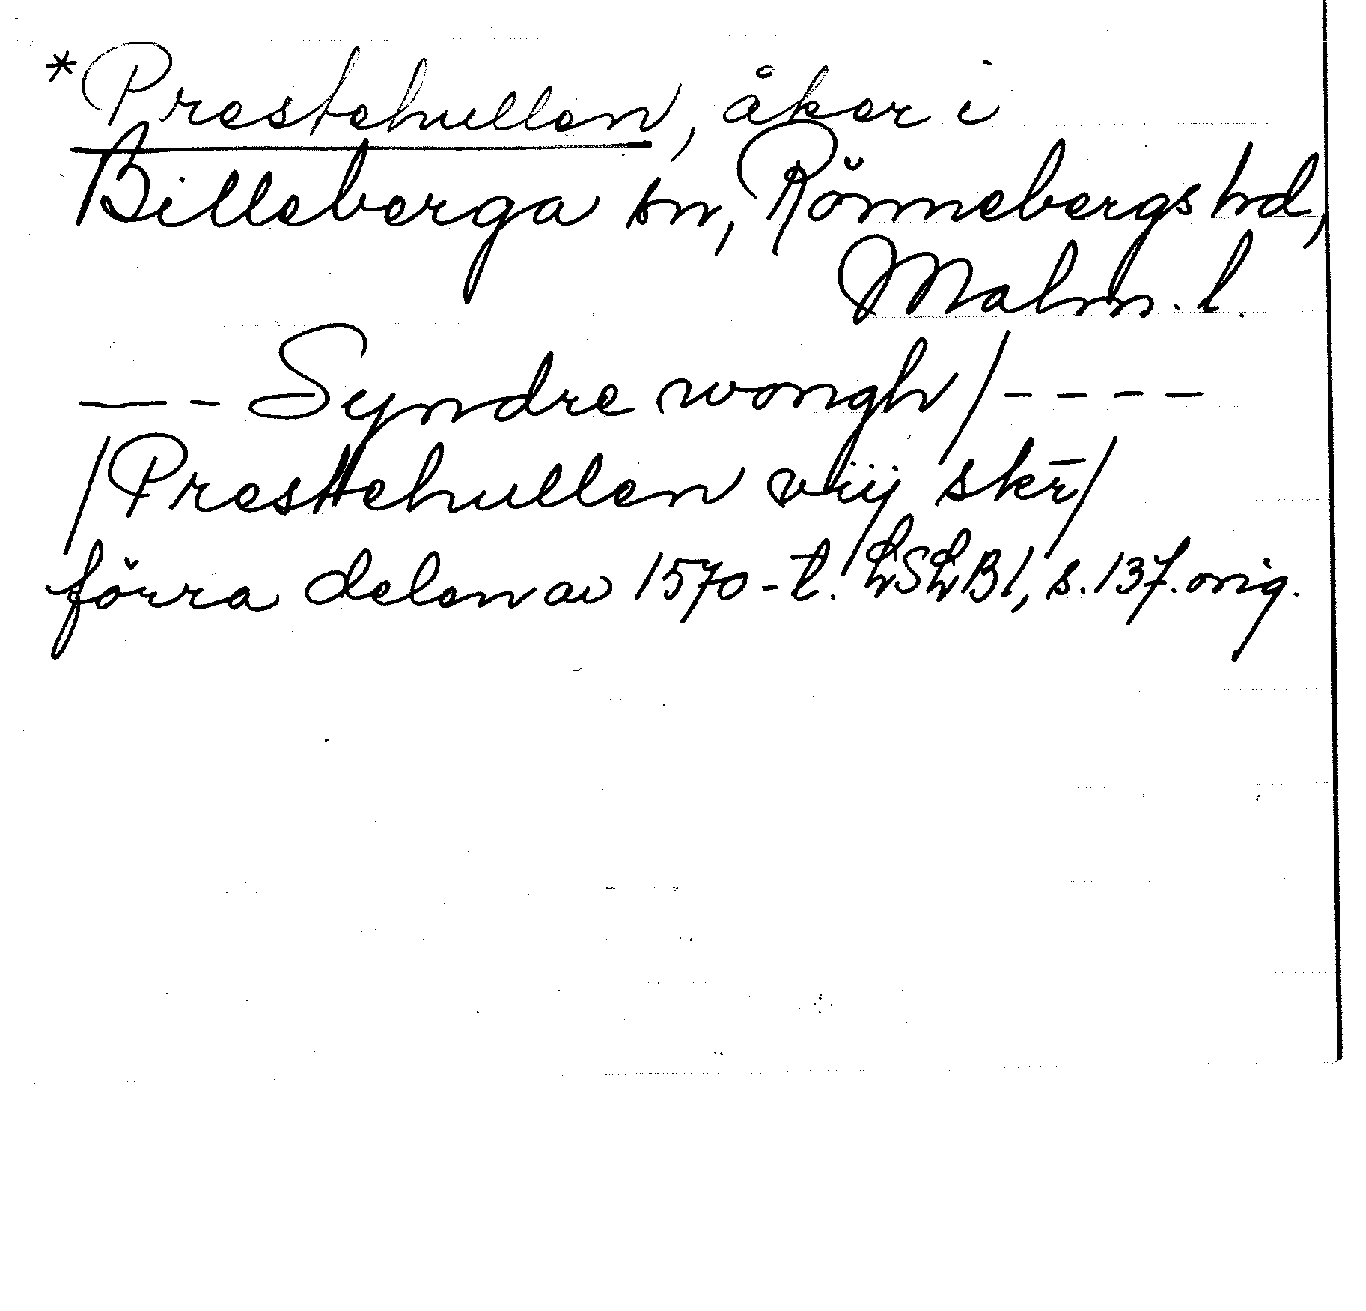 *Prestehullen, åker i
Billeberga sn, Rönnebergs hd,
Malm. l.
--- Syndre wongh / ----
/ Prestehullen viij skr̄ /
förra delen av 1570-t. LSLB1, s. 137. orig.